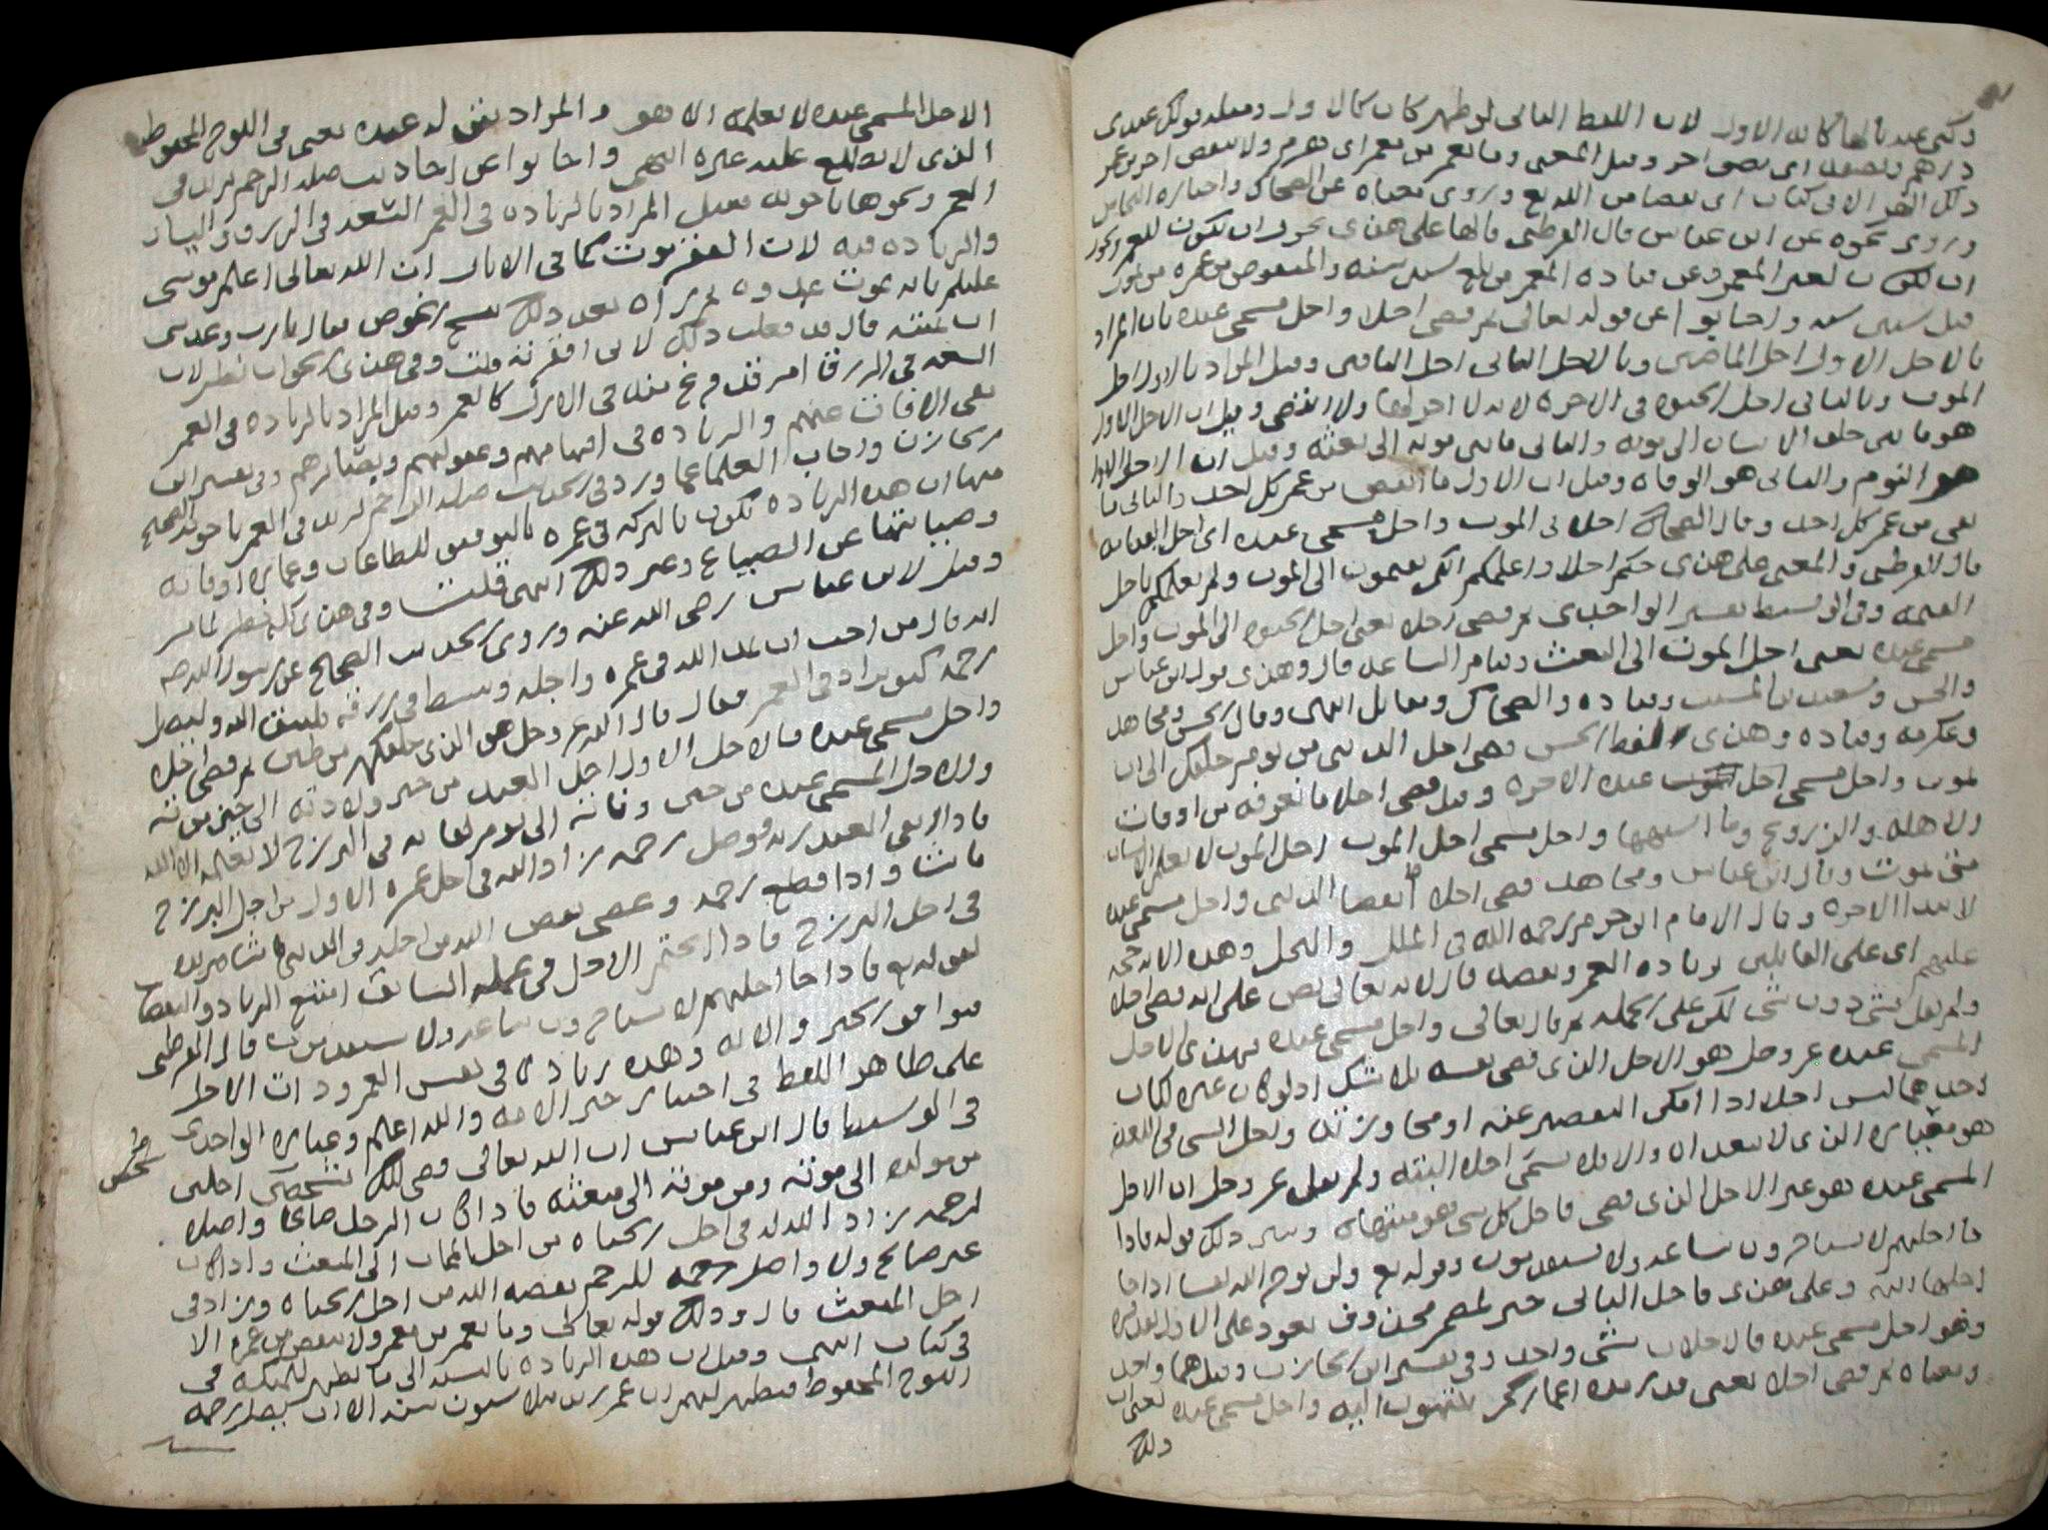 وكنى عنه بالهاء كانه الاول لان اللفظ الثانى لو ظهر كان كالاول ومثله قولك عندى
درهم ونصفه اى نصف اخر وقيل المعنى وما يعمر من معمر اى يهرم ولا ينقص اخر من عمر
ذلك الا فى كتاب اى بقضا من الله تع وروى معناه عن الضحاك واختاره النحاس
وروى نحوه عن ابن عباس قال القرطبى فالها على هذى يجوز ان تكون للمعمر ويجوز
ان تكون لغير المعمر وعن قتاده المعمر من بلغ ستين سنه والمنقوص من عمره من يموت
قبل ستين سنه واجابوا عن قوله تعالى ثم قضى اجلا واجل مسمى عنده بان المراد
بالاجل الاول اجل الماضين وبالاجل الثانى اجل الباقين وقيل المراد بالاول اجل
الموت وبالثانى اجل الحيوه فى الاخره لانه لا اخر لها ولا انقضى وقيل ان الاجل الاول
هو ما بين خلق الانسان الى موته والثانى ما بين موته الى بعثه وقيل ان الاجل الاول
هو النوم والثانى هو الوفاه وقيل ان الاول ما انقضى من عمر كل احد والثانى ما
بقى من عمر كل احد وقال الضحاك اجلا فى الموت واجل مسمى عنده اى اجل القيامه
قال القرطبى والمعنى على هذى حكم اجلا واعلمكم انكم تقيمون الى الموت ولم يعلمكم باجل
القيمه وفى الوسيط تفسير الواحدى ثم قضى اجلا يعنى اجل الحيوه الى الموت واجل
مسمى عنده يعنى اجل الموت الى البعث وقيام الساعه قال وهذى قول ابن عباس
والحسن وسعيد بن المسيب وقتاده والضحاك ومقاتل انتهى وقال الحسن ومجاهد
وعكرمه وقتاده وهذى لفظ الحسن قضى اجل الدنيى من يوم خلقك الى ان
تموت واجل مسمى اجل عنده الاخره وقيل قضى اجلا ما نعرفه من اوقات
الاهله والزروع وما اشبهها واجل مسمى اجل الموت اجل الموت لا يعلم الانسان
متى يموت وقال ابن عباس ومجاهد قضى اجلا بقضا الدنيى واجل مسمى عنده
لابتدا الاخره وقال الامام ابن حزم رحمه الله فى الملل والنحل وهذه الايه حجه
عليهم اى على القايلين بزياده العمر ونقصه قال لانه تعالى نص على انه قضى اجلا
ولم يقل لشى دون شى لكن على الجمله ثم قال تعالى واجل مسمى عنده فهذى الاجل
المسمى عنده عز وجل هو الاجل الذى قضى نفسه بلا شك اذ لو كان غيره لكان
احدهما ليس اجلا اذا امكن التقصير عنه او مجاوزته واجل الشى فى اللغه
هو ميقاته الذى لا يتعداه والا فلا يسمى اجلا البته ولم يقل عز وجل ان الاجل
المسمى عنده هو غير الاجل الذى قضى فاجل كل شى هو منتهاه وبين ذلك قوله فاذا
جا اجلهم لا يستاخرون ساعه ولا يستقدمون وقوله تع ولن يوخر الله نفسا اذا جا
اجلها الايه وعلى هذى فاجل الثانى خبر لمضمر محذوف يعود على الاول تقديره
وهو اجل مسمى عنده فالاجلان شى واحد وفى تفسير ابن الخازن وقيل هما واحد
ومعناه ثم قضى اجلا يعنى قدر مده اعماركم تنتهون اليه واجل مسمى عنده يعنى ان
ذلك
الاجل المسمى عنده لا يعلمه الا هو والمراد بقوله عنده يعنى فى اللوح المحفوظ
الذى لا يطلع عليه غيره انتهى واجابوا عن احاديث صله الرحم تزيد فى
العمر ونحوها باجوبه فقيل المراد بالزياده فى العمر السعه فى الرزق
والزياده فيه لان الفقر موت كما فى الاثار ان الله تعالى اعلم موسى
عليلم بانه يموت عدوه ثم راه بعد ذلك ينسج الخوص فقال يارب وعدتنى
ان تميته قال قد فعلت ذلك لانى افقرته قلت وفى هذى الجواب نظر لان
السعه فى الرزق امر قد فرغ منه فى الازل كالعمر وقيل المراد بالزياده فى العمر
نفى الافات عنهم والزياده فى افهامهم وعقولهم وبصائرهم وفى تفسير ابن
الخازن واجاب العلما عما ورد فى الحديث صله الرحم تزيد فى العمر باجوبه الصحيح
منها ان هذه الزياده تكون بالبركه فى عمره بالتوفيق للطاعات وعماره اوقاته
وصيانتها عن الضياع وغير ذلك انتهى قلت وفى هذى كله نظر
وقيل لابن عباس رضى الله عنه وروى الحديث الصحيح عن رسول الله صه
انه قال من احب ان يمد الله فى عمره واجله ويبسط فى رزقه فليتق الله وليصل
رحمه كيف يزاد فى العمر فقال قال الله عز وجل هو الذى خلقكم من طين ثم قضى اجلا
واجل مسمى عنده فالاجل الاول اجل العبد من حين ولادته الى حين موته
والاجل المسمى عنده من حين وفاته الى يوم لقايه فى البرزخ لا يعلمه الا الله
فاذا اتقى العبد ربه ووصل رحمه زاد الله فى اجل عمره الاول من اجل البرزخ
ما شا واذا قطع رحمه وعصى نقص الله من اجله فى الدنيى ما شا فيزيده
فى اجل البرزخ فاذا تحتم الاجل فى علمه السابق امتنع الزياده والنقصان
لقوله تع فاذا جا اجلهم لا يستاخرون ساعه ولا يستقدمون قال القرطبى
فتوافق الخبر والايه وهذه زياده فى نفس العمر وذات الاجل
على ظاهر اللفظ فى اختيار حبر الامه والله اعلم وعباره الواحدى
فى الوسيط قال ابن عباس ان الله تعالى قضى لكل شخص اجلين
من مولده الى موته ومن موته الى مبعثه فاذا كان الرجل صالحا واصلا
لرحمه زاد الله له فى اجل الحياه من اجل الممات الى المبعث واذا كان
غير صالح ولا واصل للرحم نقصه الله من اجل الحياه وزاد فى
اجل المبعث قال وذلك قوله تعالى وما يعمر من معمر ولا ينقص من عمره الا
فى كتاب انتهى وقيل ان هذه الزياده بالنسبه الى ما يظهر للملئكه فى
اللوح المحفوظ فيظهر لهم ان عمر زيد مثلا ستون سنه الا ان يصل رحمه